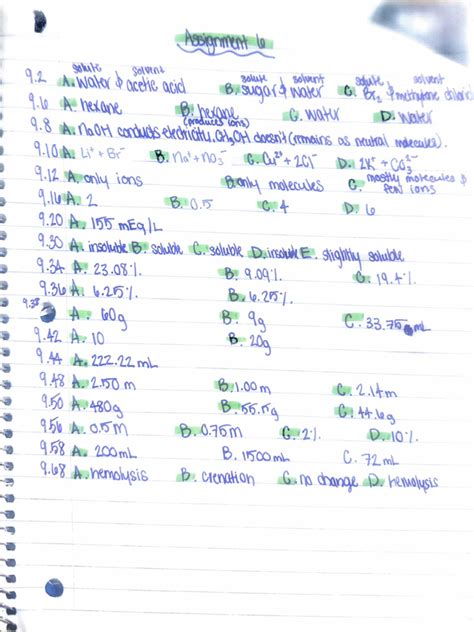 Assignment 6
solute solvent solute solvent solute solvent
9.2 A. water & acetic acid B. sugar & water C. Br₂ & methylene chloride
9.6 A. hexane B. hexane C. water D. water
(produces ions)
9.8 A. NaOH conducts electricity. CH₃OH doesn't (remains as neutral molecules).
9.10 A. Li⁺ + Br⁻ B. Na⁺ + NO₃⁻ C. Cu²⁺ + 2Cl⁻ D. 2K⁺ + CO₃²⁻
9.12 A. only ions B. only molecules C. mostly molecules & few ions
9.16 A. 2 B. 0.5 C. 4 D. 6
9.20 A. 155 mEq/L
9.30 A. insoluble B. soluble C. soluble D. insoluble E. slightly soluble
9.34 A. 23.08% B. 9.09% C. 19.4%
9.36 A. 6.25% B. 6.25%
9.38 A. 60g B. 9g C. 33.75 mL
9.42 A. 10 B. 20g
9.44 A. 222.22 mL
9.48 A. 2.50 m B. 1.00 m C. 2.14 m
9.50 A. 480g B. 55.5g C. 44.6g
9.56 A. 0.5 M B. 0.75 M C. 2% D. 10%
9.58 A. 200 mL B. 1500 mL C. 72 mL
9.68 A. hemolysis B. crenation C. no change D. hemolysis